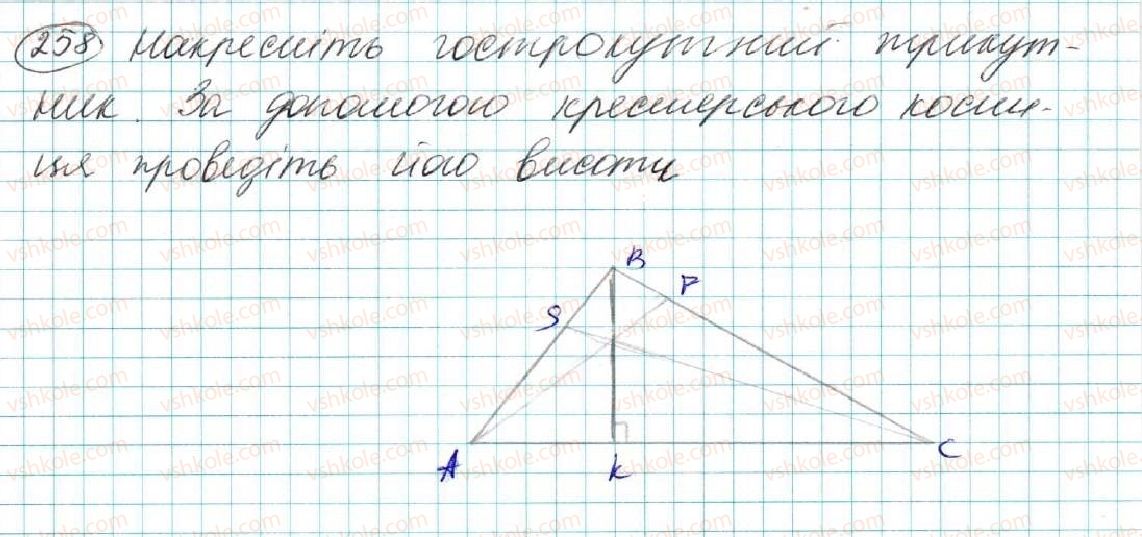 258 Накресліть гострокутний трикут-
ник. За допомогою креслярського косин-
ця проведіть його висоти
B
P
S
A
K
C
vshkole.com